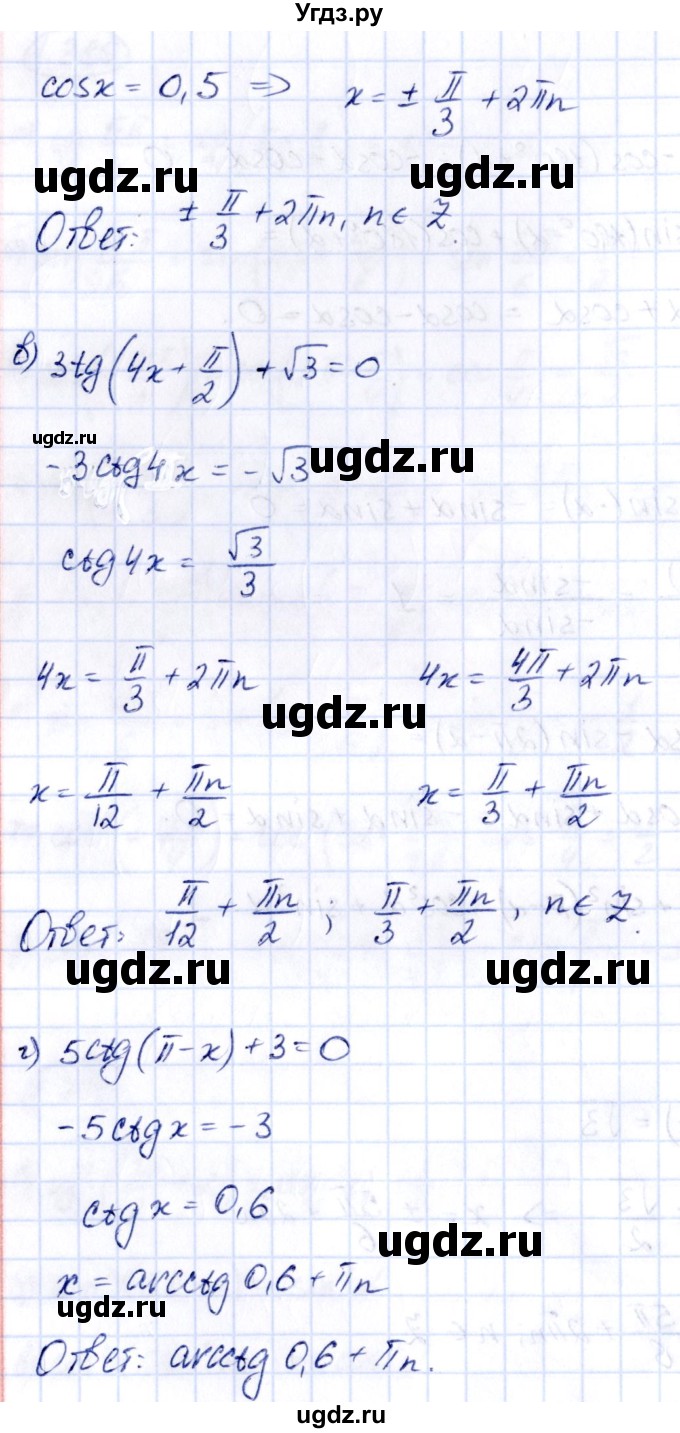 Угдз.ру
cosx = 0,5 => x = ± π/3 + 2πn
ugdz.ru ugdz.ru
Ответ: ± π/3 + 2πn, n ∈ Z.
в) 3tg(4x + π/2) + √3 = 0
ugdz.ru
-3ctg4x = -√3
ugdz.ru
ctg4x = √3/3
4x = π/3 + 2πn 4x = 4π/3 + 2πn
ugdz.ru
x = π/12 + πn/2 x = π/3 + πn/2
Ответ: π/12 + πn/2; π/3 + πn/2, n ∈ Z.
ugdz.ru ugdz.ru
г) 5ctg(π-x) + 3 = 0
-5ctgx = -3
ctgx = 0,6
ugdz.ru
x = arcctg 0,6 + πn
ugdz.ru
Ответ: arcctg 0,6 + πn.
ugdz.ru